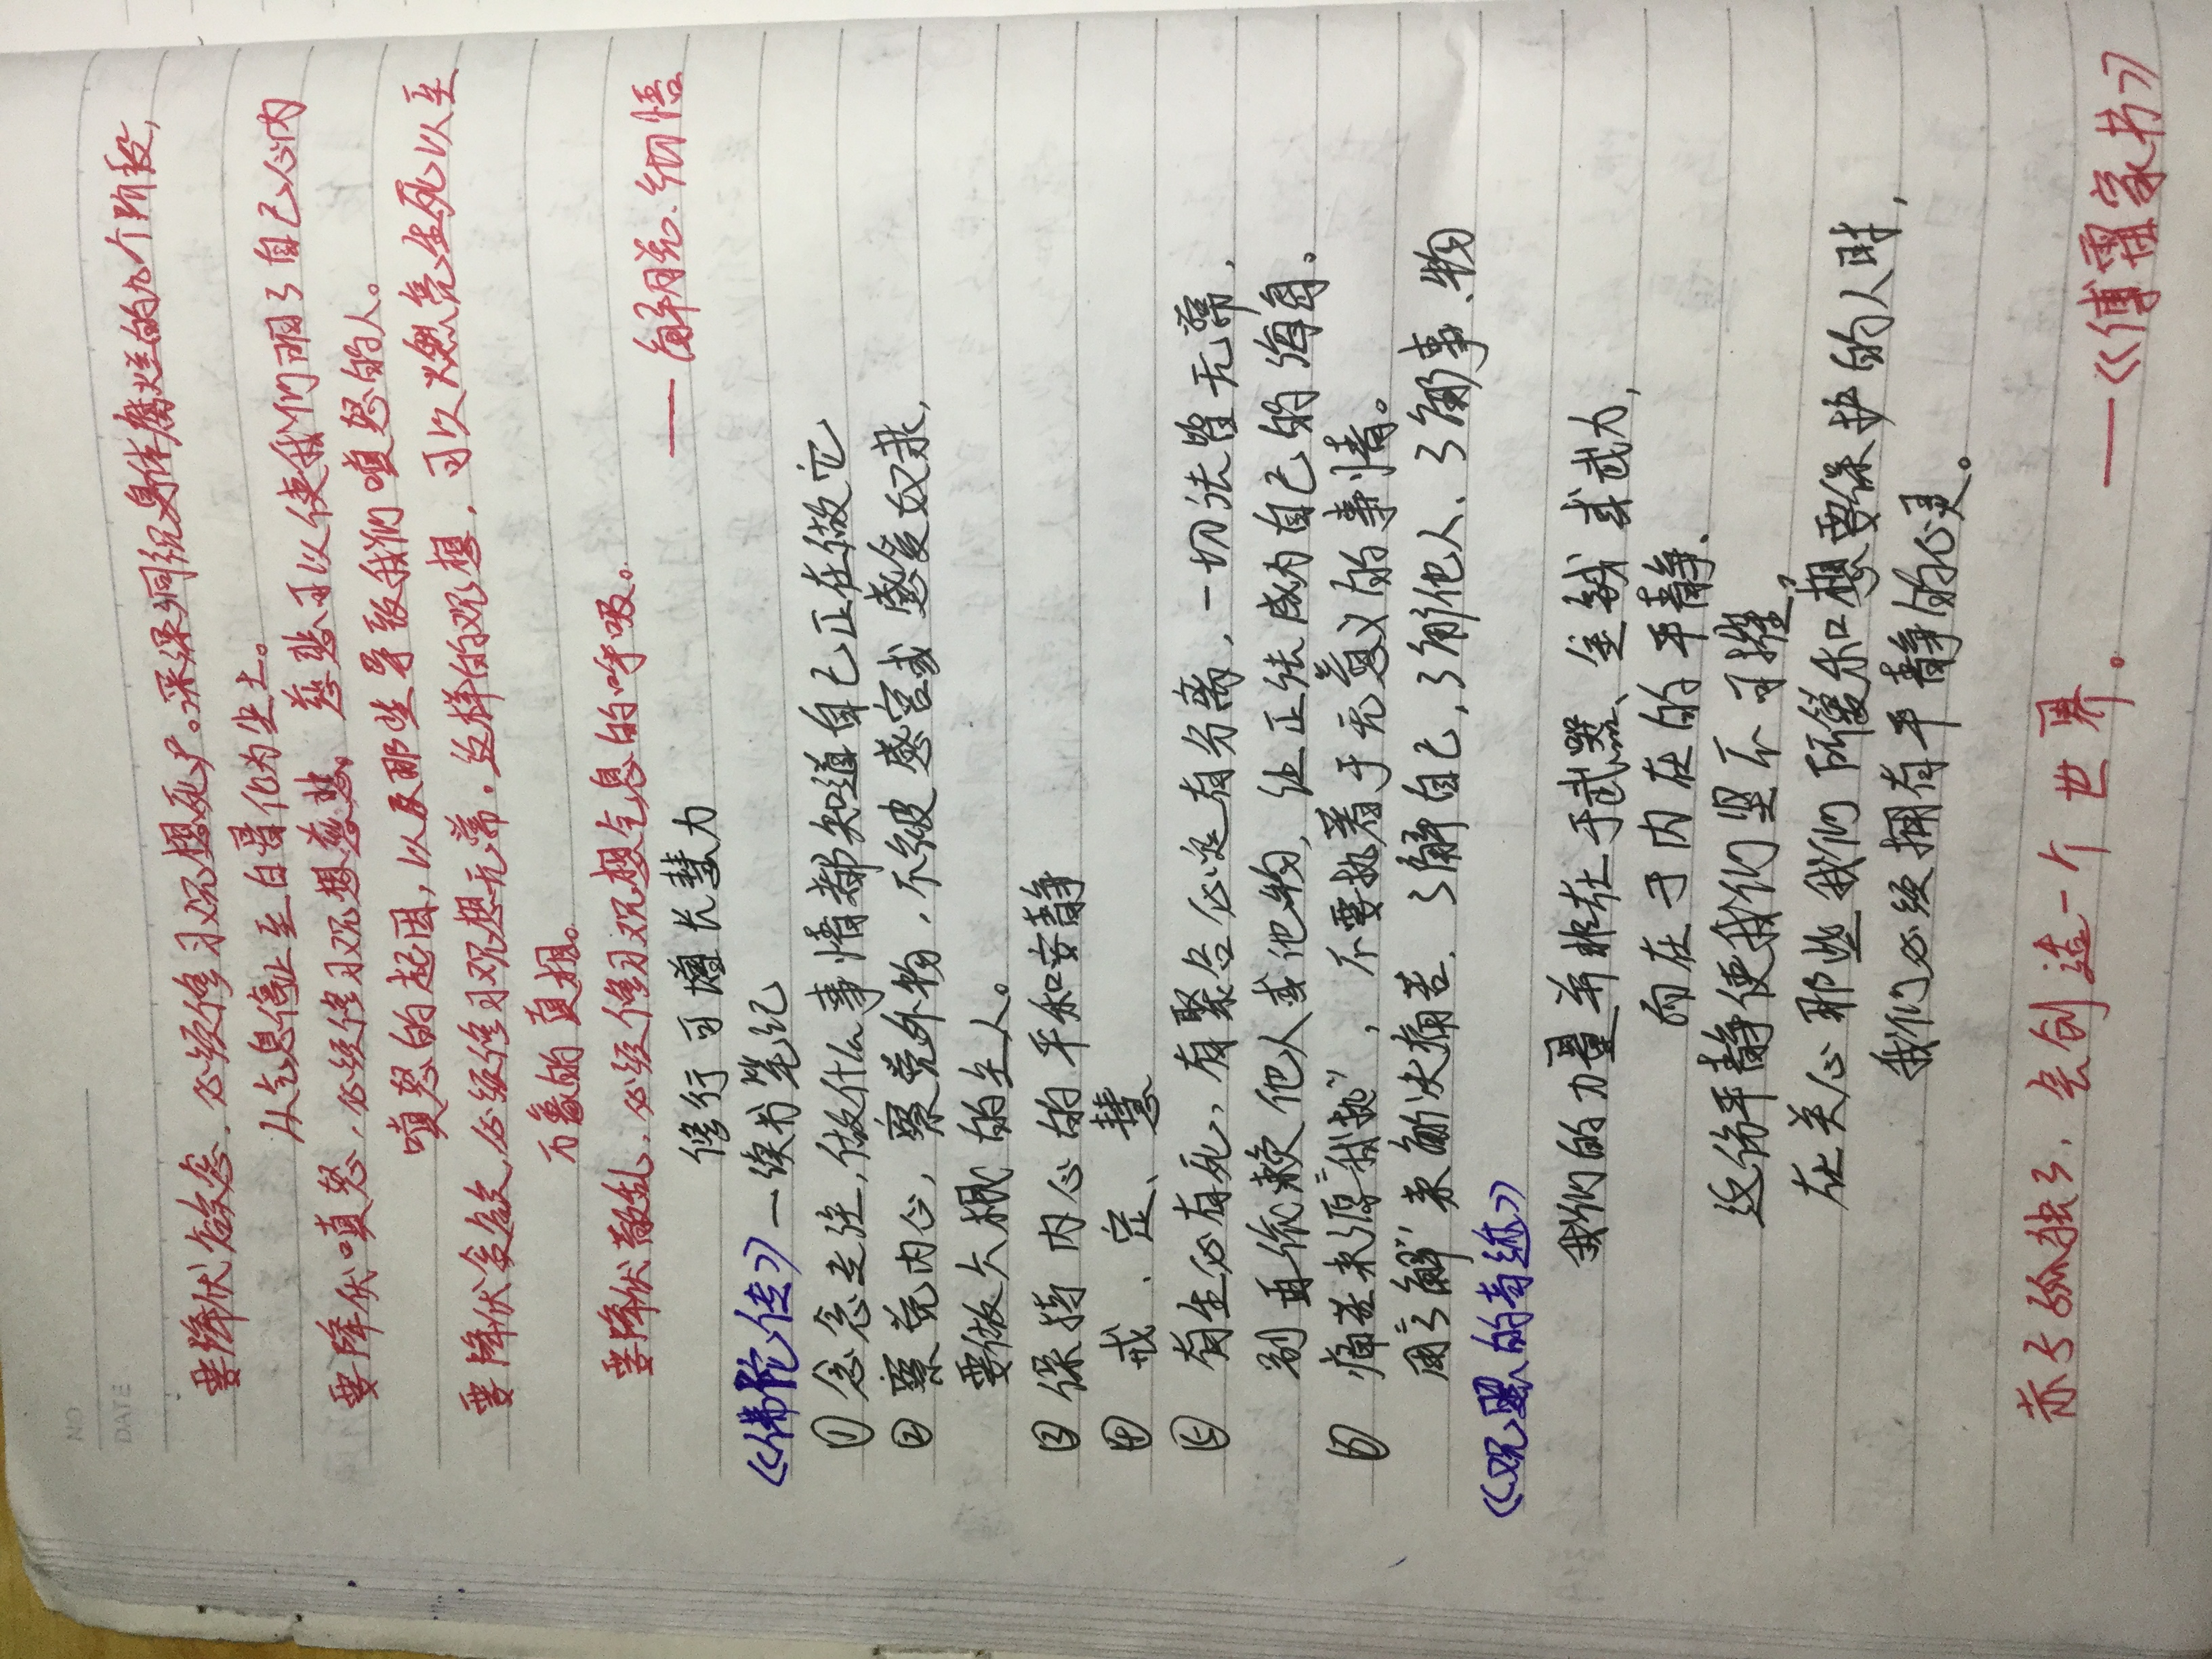 NO
DATE
要降伏欲念，必须修习观想死尸。深深洞视身体腐烂的九个阶段，
从气息停止至白骨化为尘土。
要降伏嗔怒，必须修习观想慈悲。慈悲可以使我们明了自己心内
嗔怒的起因，以及那些导致我们嗔怒的人。
要降伏贪欲，必须修习观想无常。这样的观想，可以燃亮生死以至
万象的真相。
要降伏散乱，必须修习观想气息的呼吸。
——解脱、彻悟
修行可增长慧力
《佛陀传》—读书笔记
① 念念专注，做什么事情都知道自己正在做它
② 察觉内心，察觉外物，不被感官或感受奴隶，
要做六根的主人。
③ 保持内心的平和安静
④ 戒、定、慧
⑤ 有生必有死，有聚合必定有分离，一切法皆无常，
别再依赖他人或他物，让正法成为自己的海岛。
⑥ 痛苦来源“我执”，不要执着于无意义的事情。
用“了解”来解决痛苦．了解自己，了解他人、了解事、物
《观照的奇迹》
我们的力量并非在于武器、金钱或武力，
而在于内在的平静、
这份平静使我们坚不可摧，
在关心那些我们所爱和想要保护的人时，
我们必须拥有平静的心灵。
赤子孤独了，会创造一个世界。
——《傅雷家书》